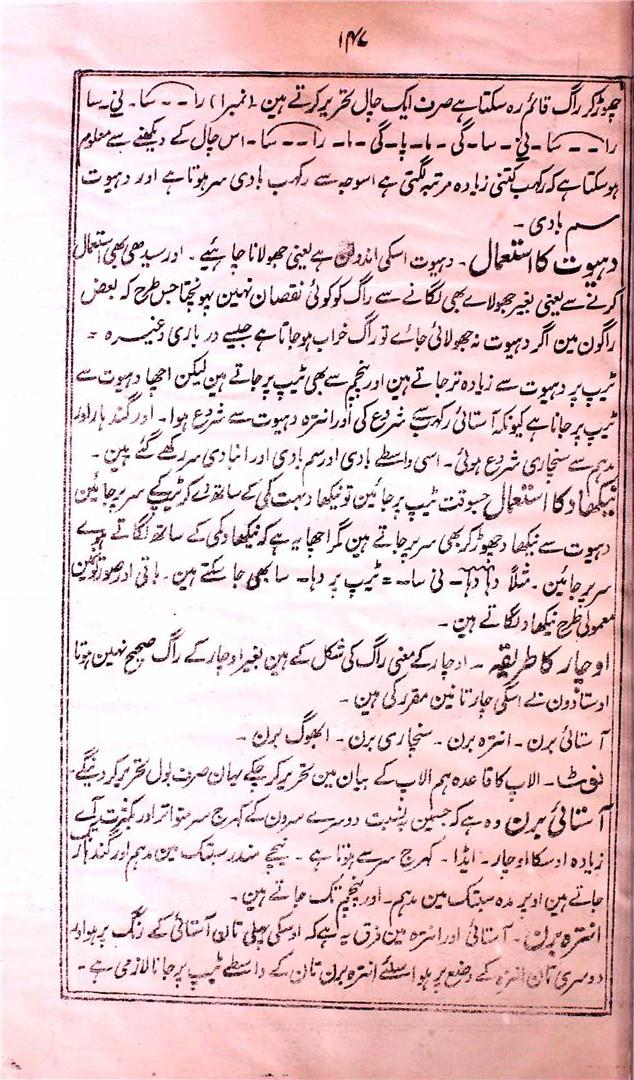 ۱۴۷
چھوڑ کر راگ قائم رہ سکتا ہے صرف ایک چال تحریر کرتے ہین (نمبر۱) را - - سا - نی - سا
را - - سا - نی - سا - گی - ما - پا - گی - ما - را - - سا - اس چال کے دیکھنے سے معلوم
ہو سکتا ہے کہ رکھب کتنی زیادہ مرتبہ لگتی ہے اسوجہ سے رکھب بادی سر ہوتا ہے اور دہیوت
سم بادی -
دہیوت کا استعمال - دہیوت اسکی اندولن ہے یعنی جھولانا چاہئیے - اور سیدھی بھی استعمال
کرنے سے یعنی بغیر جھولاے بھی لگانے سے راگ کو کوئی نقصان نہین پہونچتا جس طرح کہ بعض
راگون مین اگر دہیوت نہ جھولائی جاے تو راگ خراب ہو جاتا ہے جیسے درباری وغیرہ =
ٹیپ پر دہیوت سے زیادہ تر جاتے ہین اور پنچم سے بھی ٹیپ پر جاتے ہین لیکن اچھا دہیوت سے
ٹیپ پر جانا ہے کیونکہ آستائی رکھب سے شروع کی اور انترہ دہیوت سے شروع ہوا - اور گندہار اور
مدہم سے سنچاری شروع ہوئی - اسی واسطے بادی اور سم بادی اور انبادی سر رکھے گئے ہین -
نیکھاد کا استعمال جسوقت ٹیپ پر جائین تو نیکھاد بہت کمی کے ساتھ لے کر ٹیپ کے سر پر جائین
دہیوت سے نیکھاد چھوڑ کر بھی سر پر جاتے ہین مگر اچھا یہ ہے کہ نیکھاد کمی کے ساتھ لگاتے ہوے
سر پر جائین - مثلاً دہا دہا - نی سا - = ٹیپ پر دہا - سا بھی جا سکتے ہین - باقی اور صورتونمین
معمولی طرح نیکھاد لگاتے ہین -
اوچار کا طریقہ - اوچار کے معنی راگ کی شکل کے ہین بغیر اوچار کے راگ صحیح نہین ہوتا
اوستادون نے اسکی چار تانین مقرر کی ہین -
آستائی برن - انترہ برن - سنچاری برن - ابھوگ برن -
نوٹ - الاپ کا قاعدہ ہم الاپ کے بیان مین تحریر کر چکے یہان صرف بول تحریر کر دینگے -
آستائی برن وہ ہے کہ جسمین بہ نسبت دوسرے سرون کے کھرج سر متواتر اور بکثرت آے
زیادہ اوسکا اوچار - ایڈا - کھرج سر سے ہوتا ہے - نیچے مندر سبتک مین مدہم اور گندہار تک
جاتے ہین اوپر مدہ سبتک مین مدہم - اور پنچم تک جاتے ہین -
انترہ برن - آستائی اور انترہ مین فرق یہ ہے کہ اوسکی پہلی تان آستائی کے رنگ پر ہو اور
دوسری تان انترہ کے وضع پر ہو اسلئے انترہ برن تان کے واسطے ٹیپ پر جانا لازمی ہے -